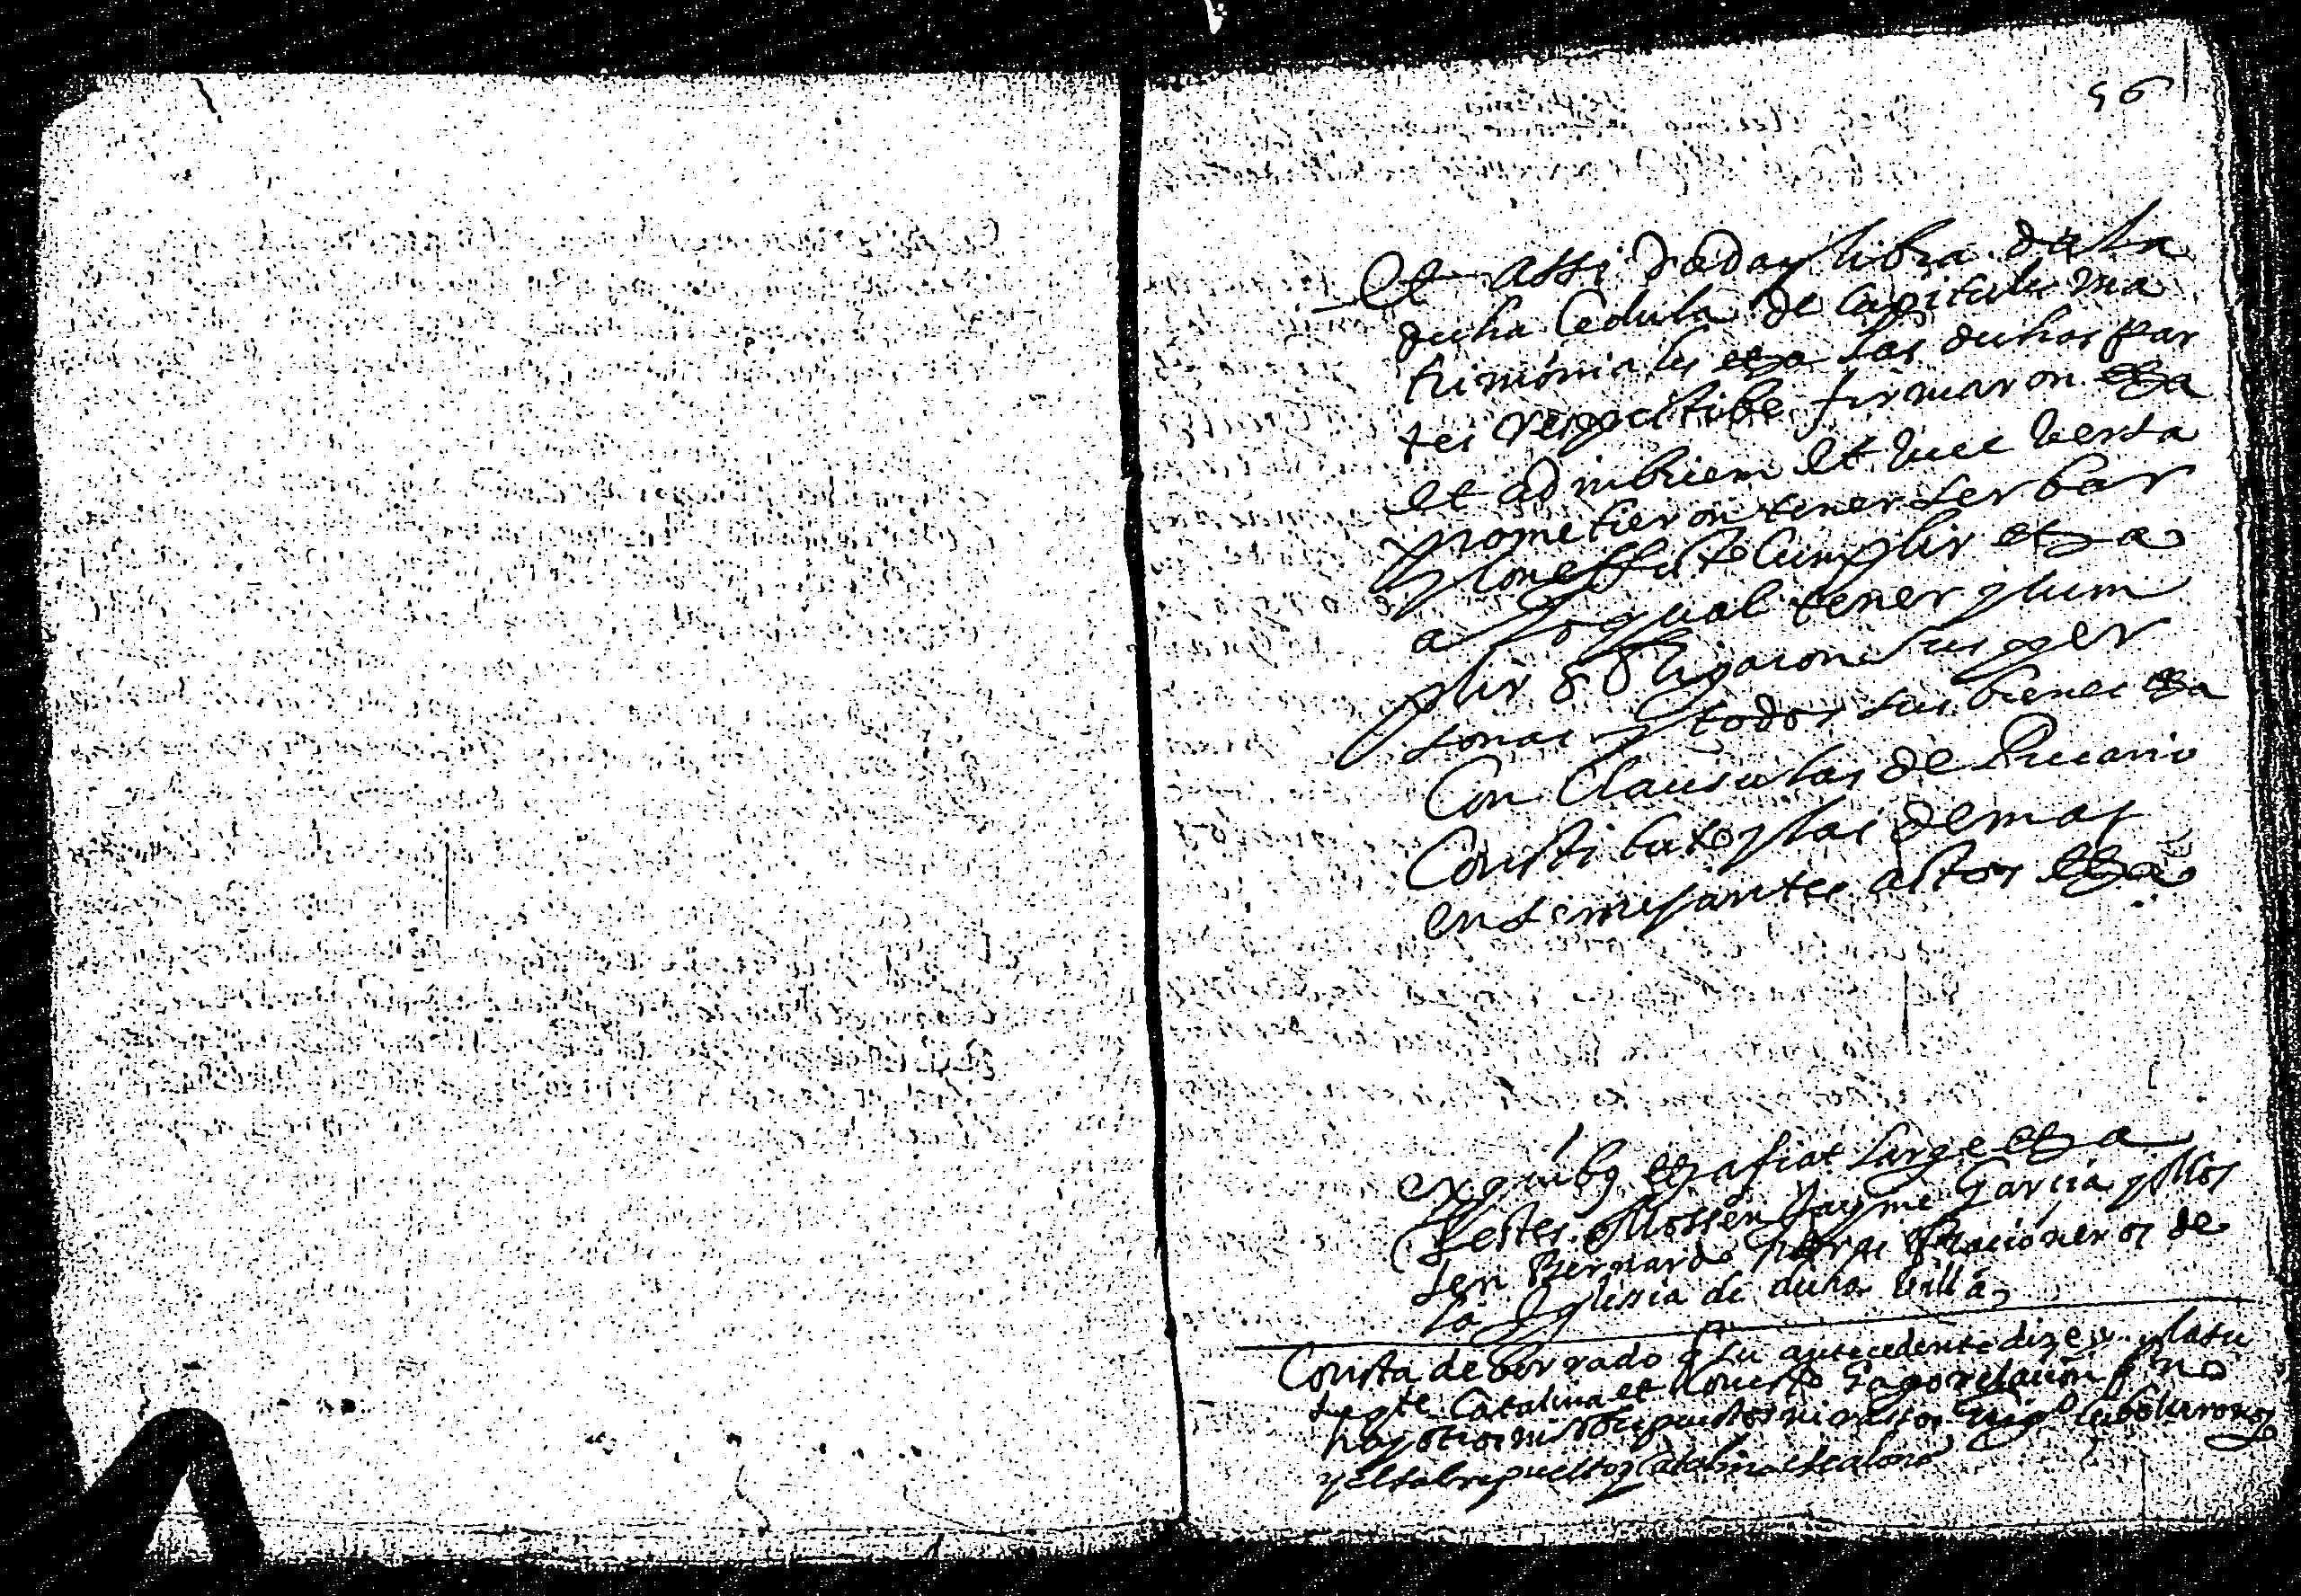 56
Et assi dada y librada la
dicha Cedula de capitules ma
trimoniales etza las dichas par
tes respectibe firmaron etza
et ad inbicem et vice versa
prometieron tener serbar
y con effecto cumplir etza
a lo qual tener y cum
plir obligaron sus per
sonas y todos sus bienes etza
Con Clausulas de Precario
Constituto y las demas
en semejantes actos etza
ex quibus etza fiat large etza
Testes Mossen Jayme Garcia y Mos
sen Bernardo Racioneros de
la Iglessia de dicha villa
Consta de borrado su antecedente dize y la su
Catalina et relacion no
hay otros
y el sobrepuesto Catalina